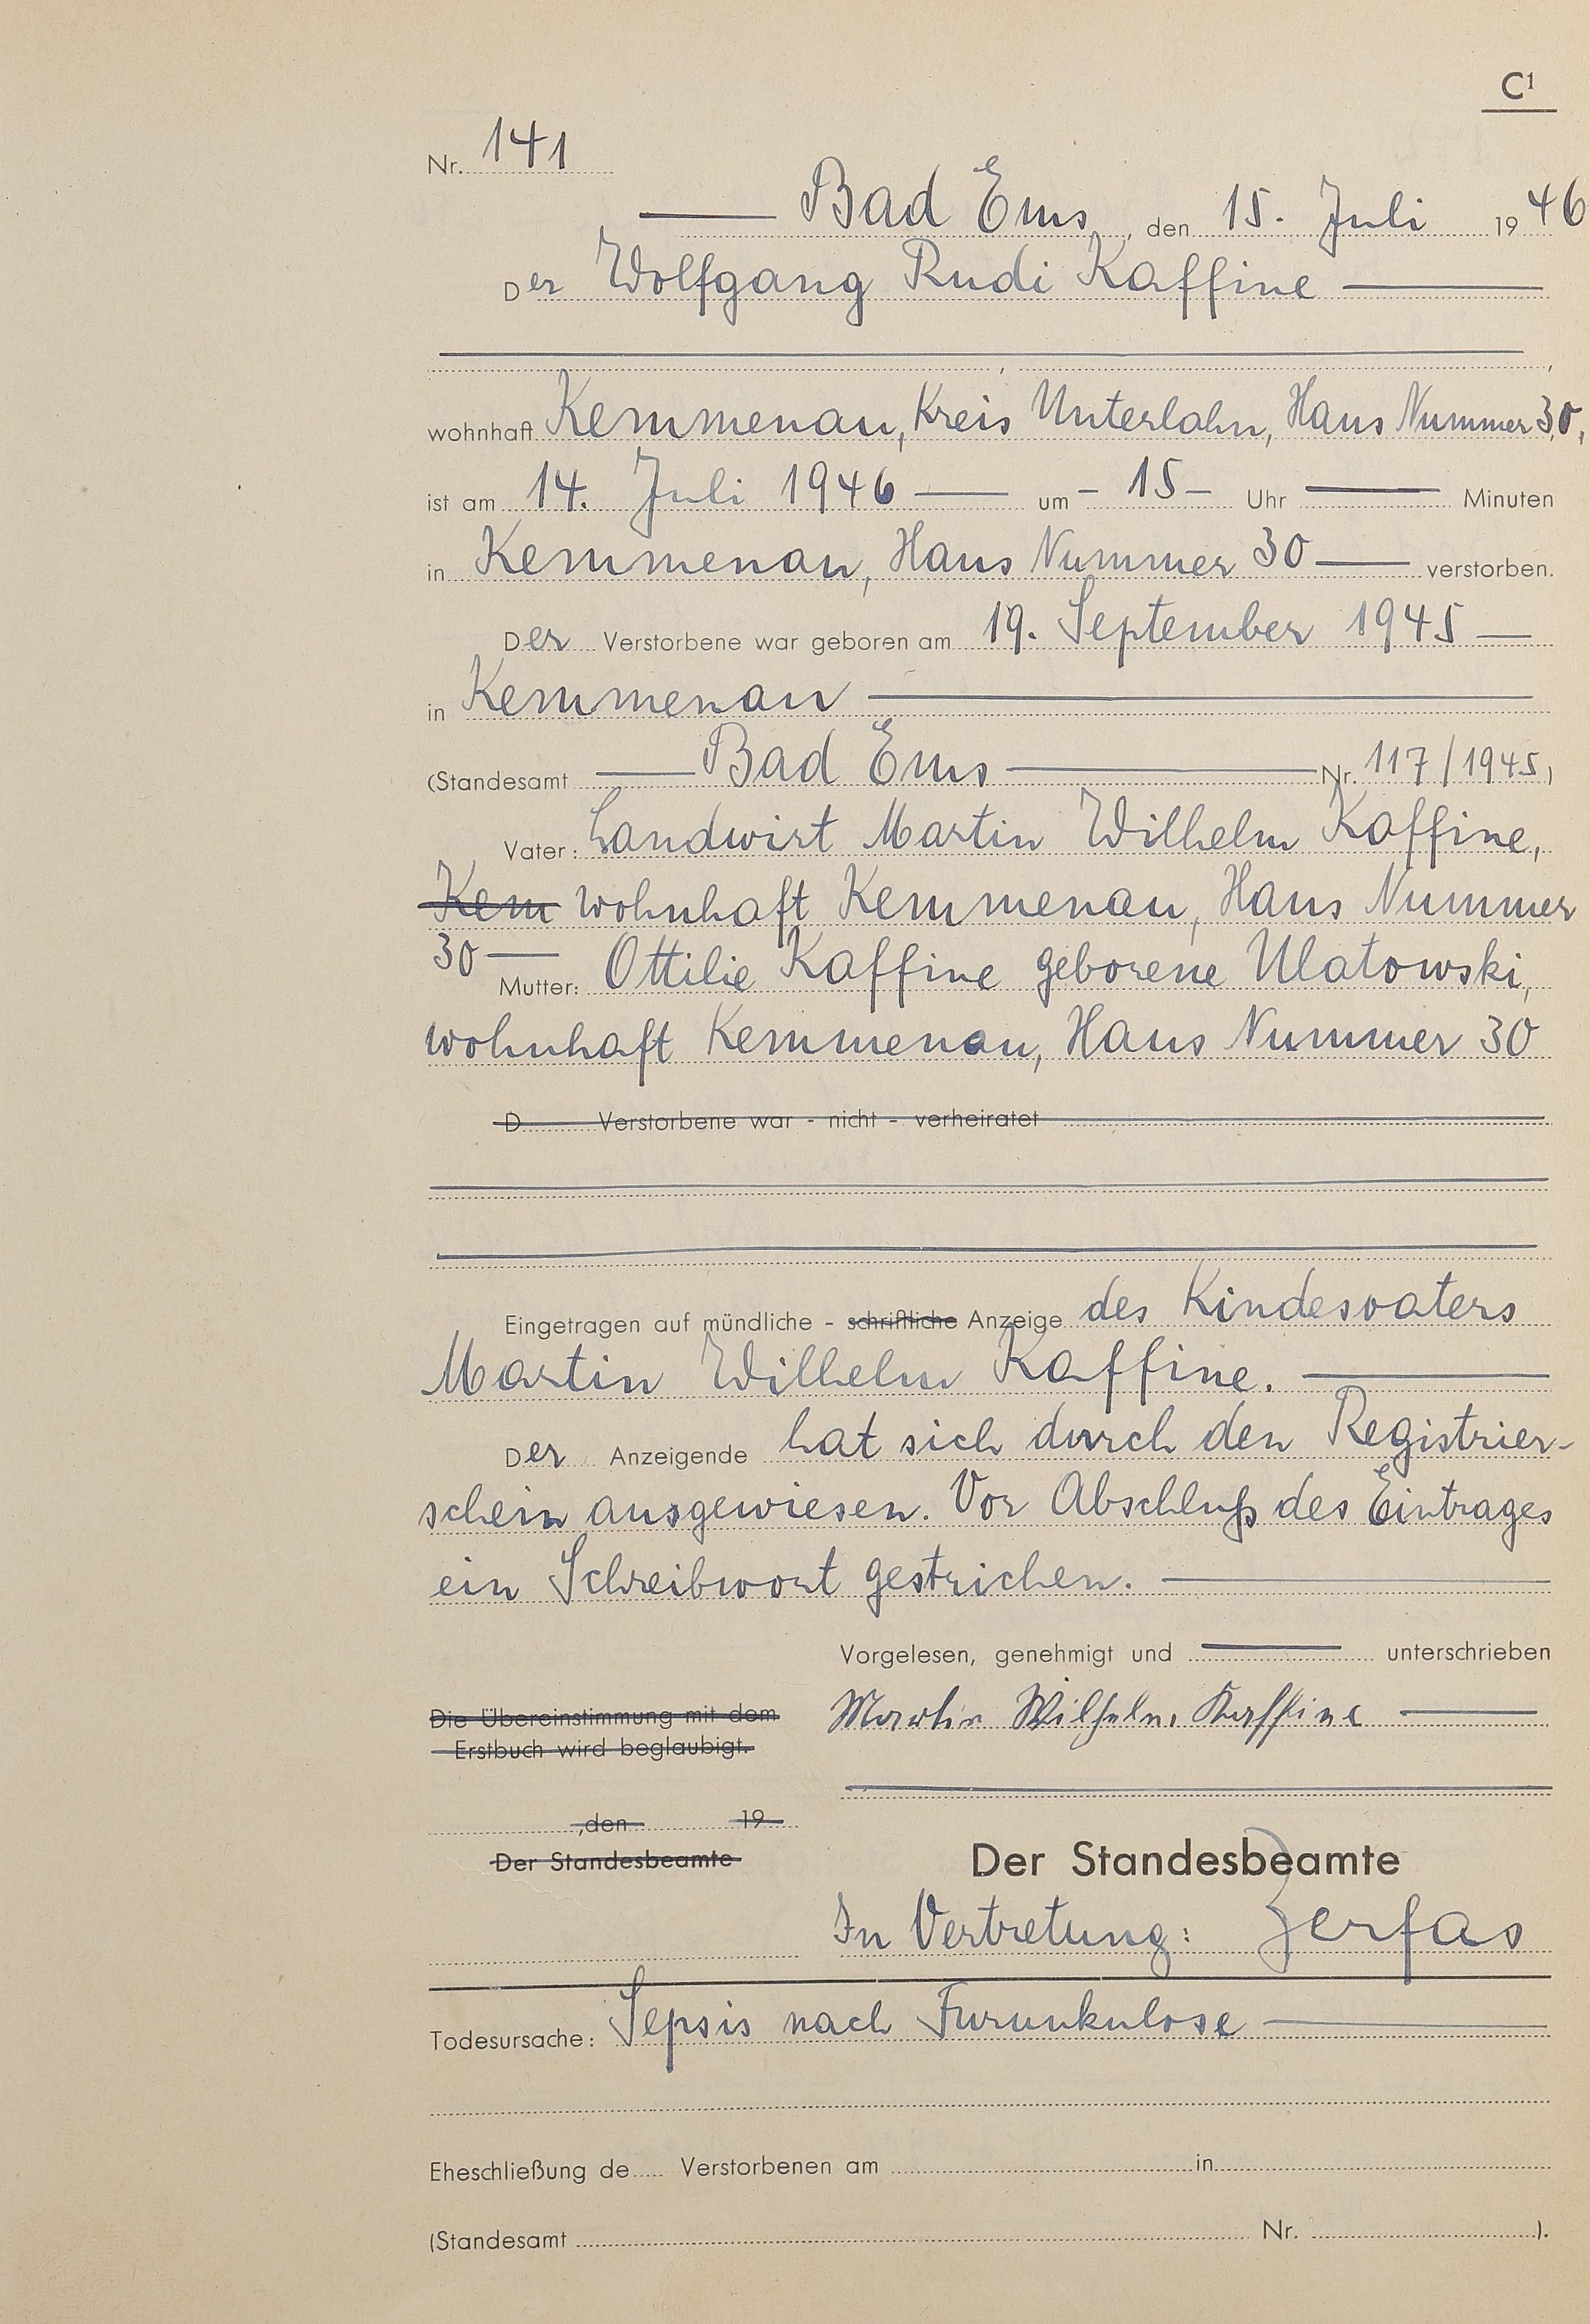 C¹
Nr. 141
Bad Ems, den 15. Juli 1946
Der Wolfgang Rudi Kaffine
wohnhaft Kemmenau, Kreis Unterlahn, Haus Nummer 30,
ist am 14. Juli 1946 um - 15 - Uhr Minuten
in Kemmenau, Haus Nummer 30 verstorben.
Der Verstorbene war geboren am 19. September 1945
in Kemmenau
(Standesamt Bad Ems Nr. 117/1945)
Vater: Landwirt Martin Wilhelm Kaffine,
Kem wohnhaft Kemmenau, Haus Nummer
30
Mutter: Ottilie Kaffine geborene Ulatowski,
wohnhaft Kemmenau, Haus Nummer 30
D Verstorbene war - nicht - verheiratet
Eingetragen auf mündliche - schriftliche Anzeige des Kindesvaters
Martin Wilhelm Kaffine.
Der Anzeigende hat sich durch den Registrier-
schein ausgewiesen. Vor Abschluß des Eintrages
ein Schreibwort gestrichen.
Vorgelesen, genehmigt und unterschrieben
Die Übereinstimmung mit dem
Erstbuch wird beglaubigt.
Martin Wilhelm Kaffine
, den 19
Der Standesbeamte
Der Standesbeamte
In Vertretung: Zerfas
Todesursache: Sepsis nach Furunkulose
Eheschließung de Verstorbenen am in
(Standesamt Nr. ).